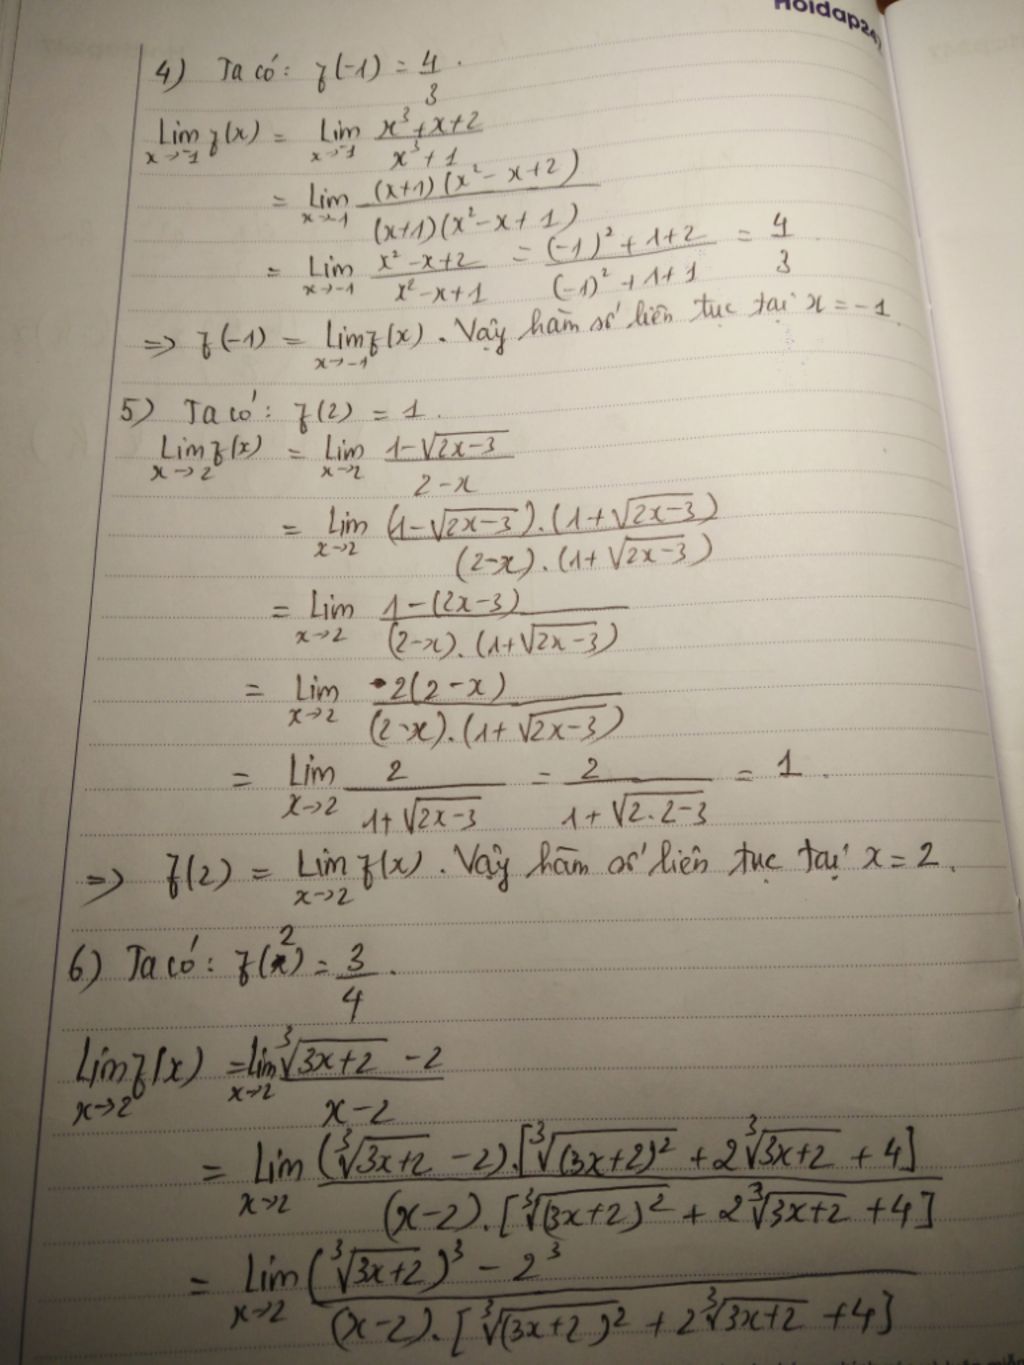 Hoidap247
4) Ta có: f(-1) = 4/3.
Lim x→-1 f(x) = Lim x→-1 (x³+x+2)/(x³+1)
= Lim x→-1 ((x+1)(x²-x+2))/((x+1)(x²-x+1))
= Lim x→-1 (x²-x+2)/(x²-x+1) = ((-1)²+1+2)/((-1)²+1+1) = 4/3
=> f(-1) = Lim x→-1 f(x). Vậy hàm số liên tục tại x = -1.
5) Ta có: f(2) = 1.
Lim x→2 f(x) = Lim x→2 (1-√(2x-3))/(2-x)
= Lim x→2 ((1-√(2x-3)).(1+√(2x-3)))/((2-x).(1+√(2x-3)))
= Lim x→2 (1-(2x-3))/((2-x).(1+√(2x-3)))
= Lim x→2 (2(2-x))/((2-x).(1+√(2x-3)))
= Lim x→2 2/(1+√(2x-3)) = 2/(1+√(2.2-3)) = 1.
=> f(2) = Lim x→2 f(x). Vậy hàm số liên tục tại x = 2.
6) Ta có: f(2) = 3/4.
Lim x→2 f(x) = lim x→2 (∛(3x+2) - 2)/(x-2)
= Lim x→2 ((∛(3x+2) - 2).[∛((3x+2)²) + 2∛(3x+2) + 4])/((x-2).[∛((3x+2)²) + 2∛(3x+2) + 4])
= Lim x→2 ((∛(3x+2))³ - 2³)/((x-2).[∛((3x+2)²) + 2∛(3x+2) + 4])